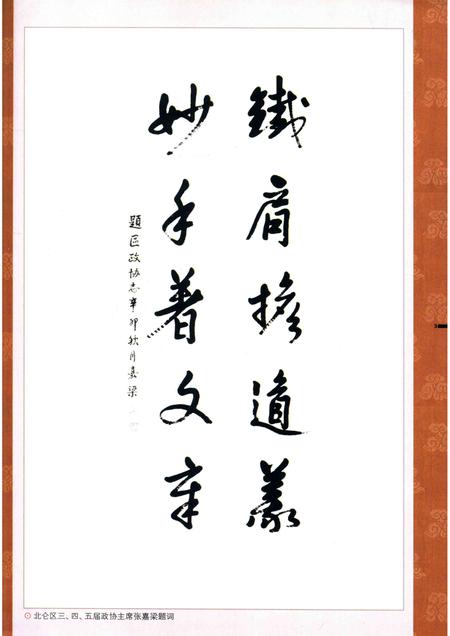 鐵肩擔道義
妙手著文章
題区政协志辛卯秋月嘉梁
北仑区三、四、五届政协主席张嘉梁题词